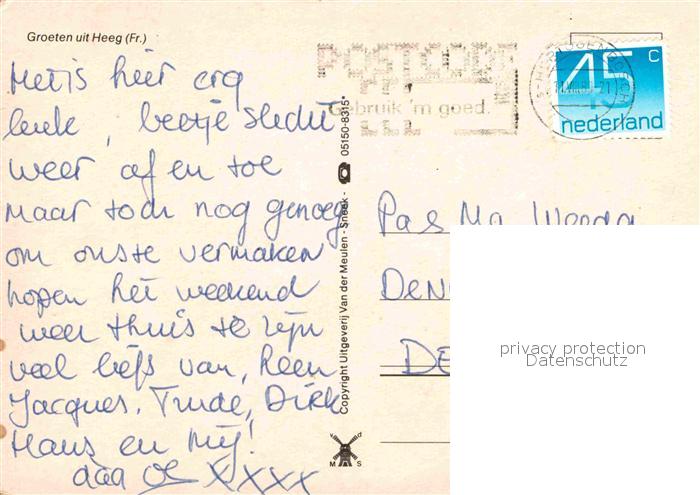 Groeten uit Heeg (Fr.)
Het is hier erg
leuk, beetje slecht
weer af en toe
maar toch nog genoeg
om ons te vermaken
hopen het weekend
weer thuis te zijn
veel liefs van, Leen
Jacques, Trude, Dirk
Hans en mij!
daa XXXX
Copyright Uitgeverij Van der Meulen - Sneek - 05150-8315*
v d
M S
POSTCODE
Gebruik 'm goed.
45 c
nederland
Pa & Ma Weeda
DEN
DE
privacy protection
Datenschutz